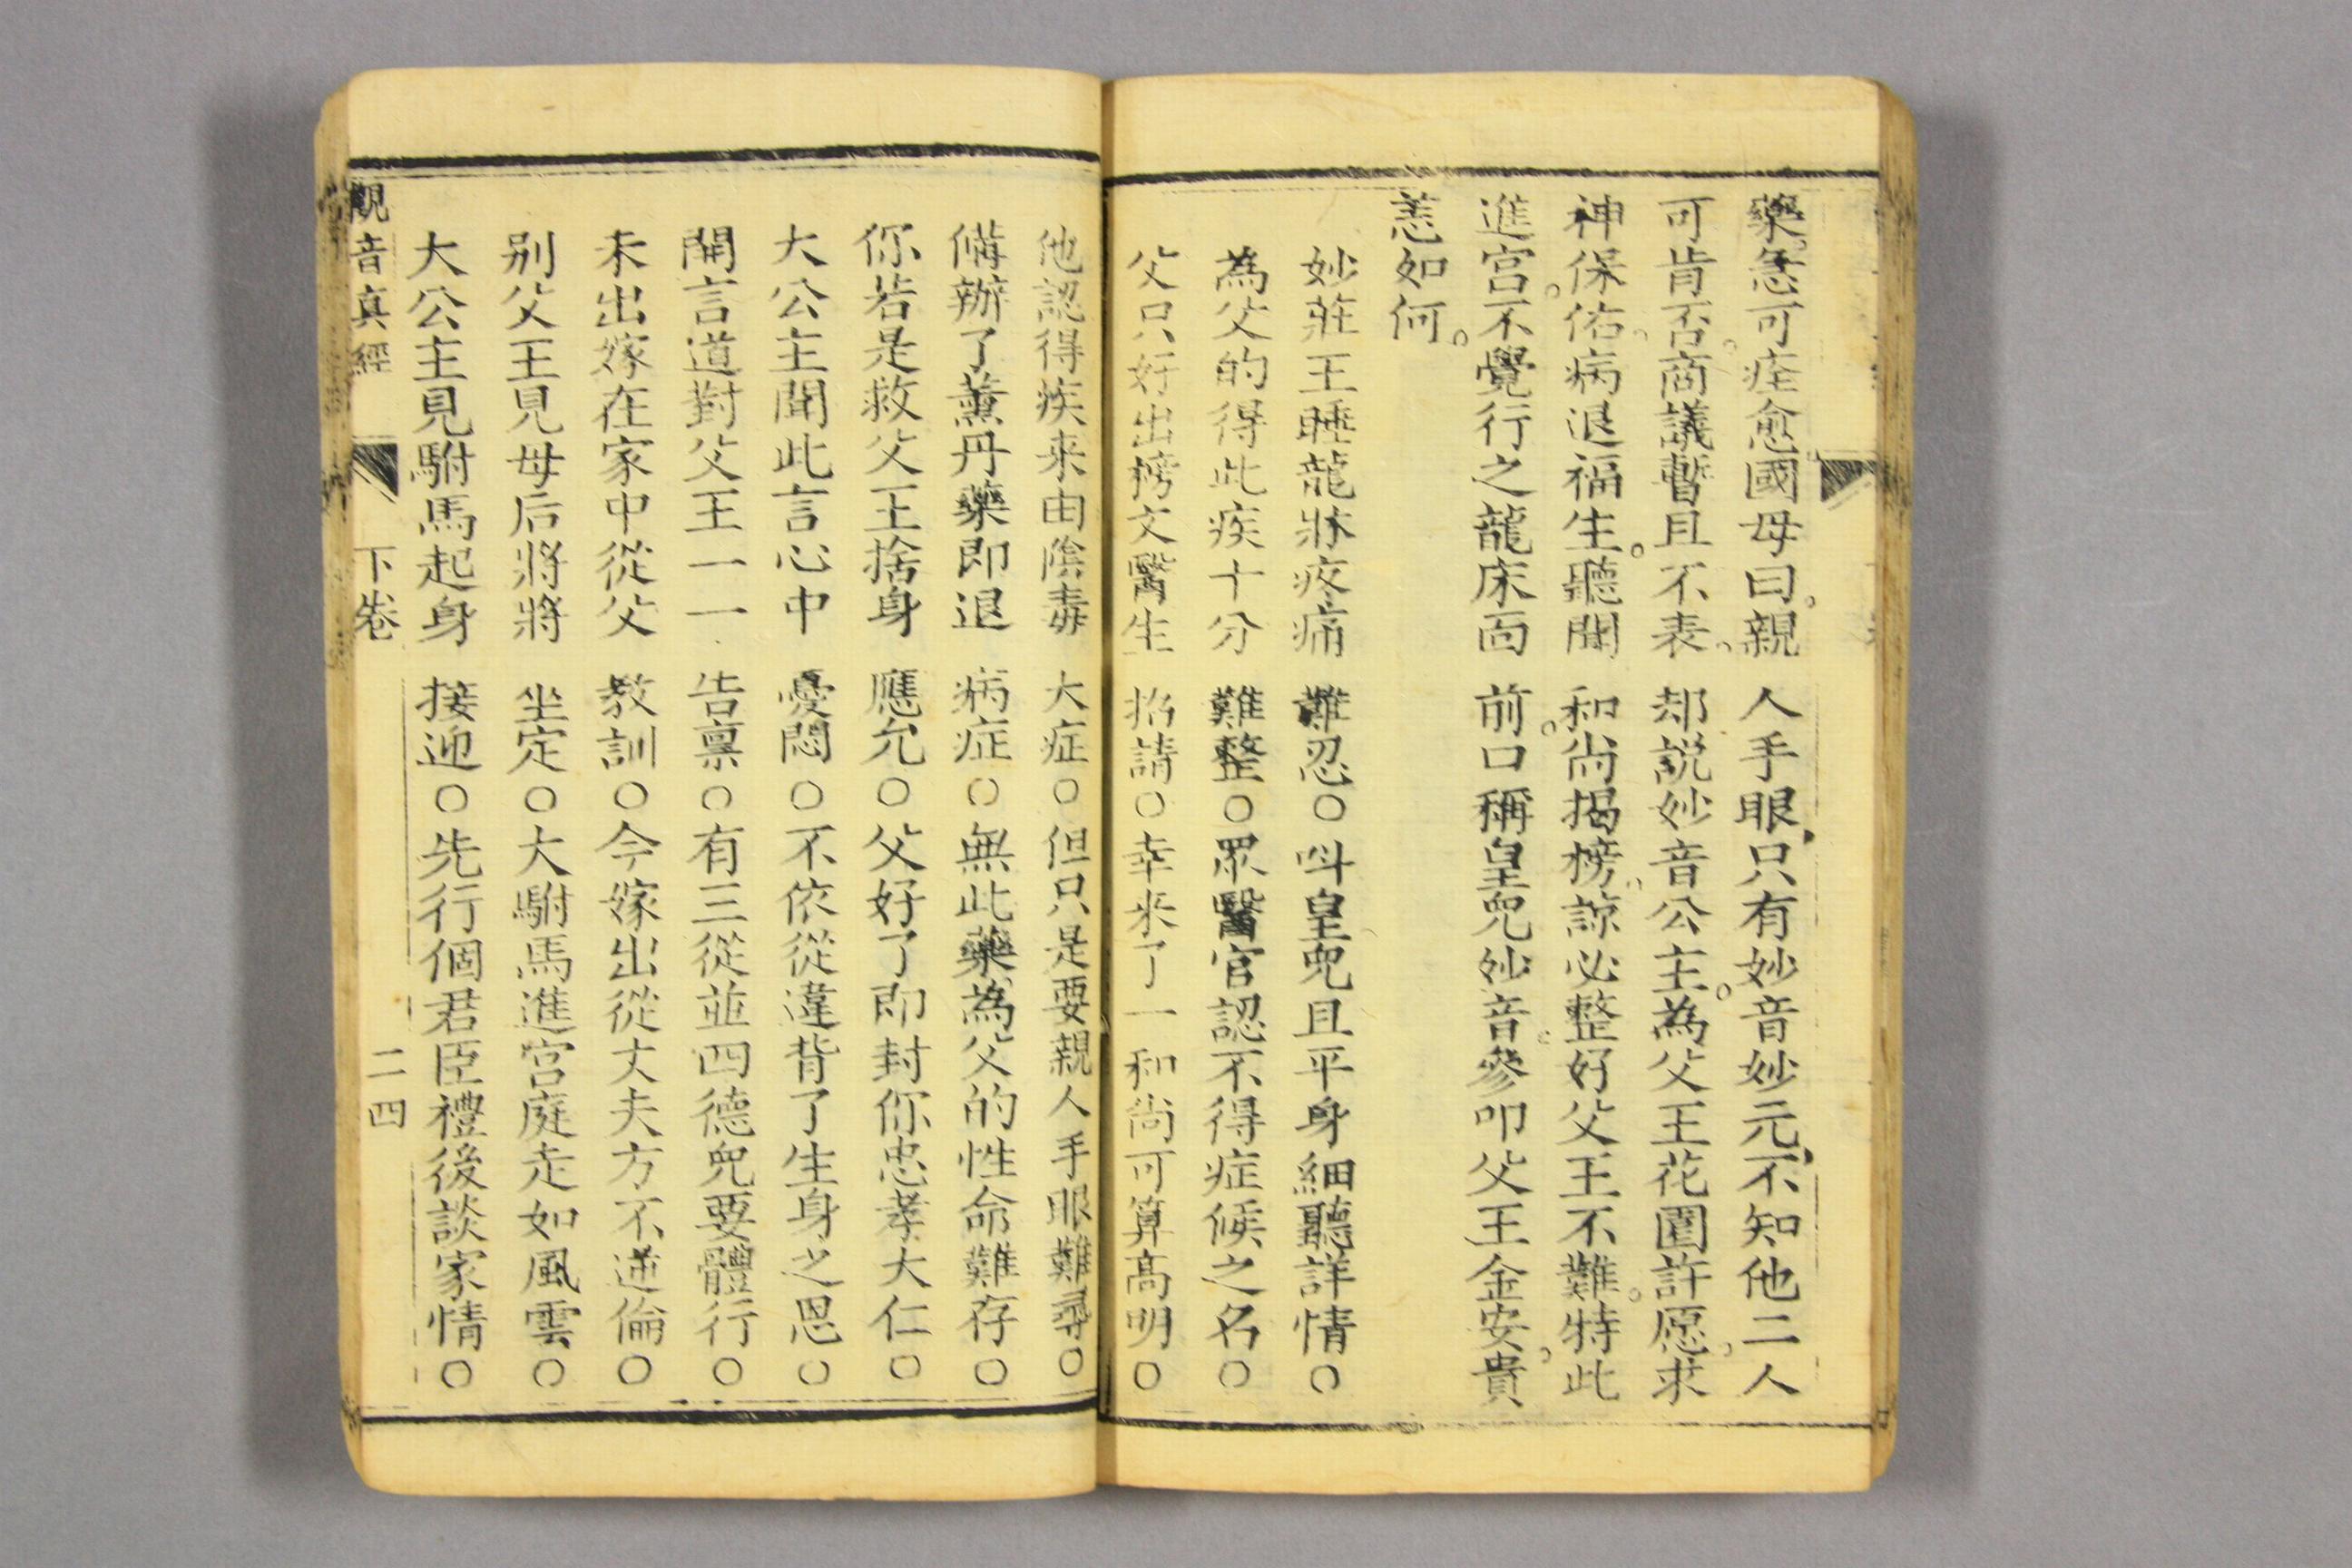 藥。急可痊愈。國母曰。親人手眼。只有妙音妙元。不知他二人
可肯否。商議暫且不表。却説妙音公主。為父王花園許愿。求
神保佑。病退福生。聽聞和尚揭榜。諒必整好父王不難。特此
進宫。不覺行之龍床面前。口稱皇兒妙音。參叩父王金安。貴
恙如何。
妙莊王睡龍牀疼痛難忍○呌皇兒且平身細聽詳情○
為父的得此疾十分難整○眾醫官認不得症候之名○
父只好出榜文醫生招請○幸来了一和尚可算高明○
他認得疾来由陰毒大症○但只是要親人手眼難尋○
偹辦了薰丹藥即退病症○無此藥為父的性命難存○
你若是救父王捨身應允○父好了即封你忠孝大仁○
大公主聞此言心中憂悶○不依從違背了生身之恩○
開言道對父王一一告禀○有三從並四德兒要體行○
未出嫁在家中從父教訓○今嫁出從丈夫方不逆倫○
别父王見母后將將坐定○大駙馬進宫庭走如風雲○
大公主見駙馬起身接迎○先行個君臣禮後談家情○
觀音真經 下卷 二四